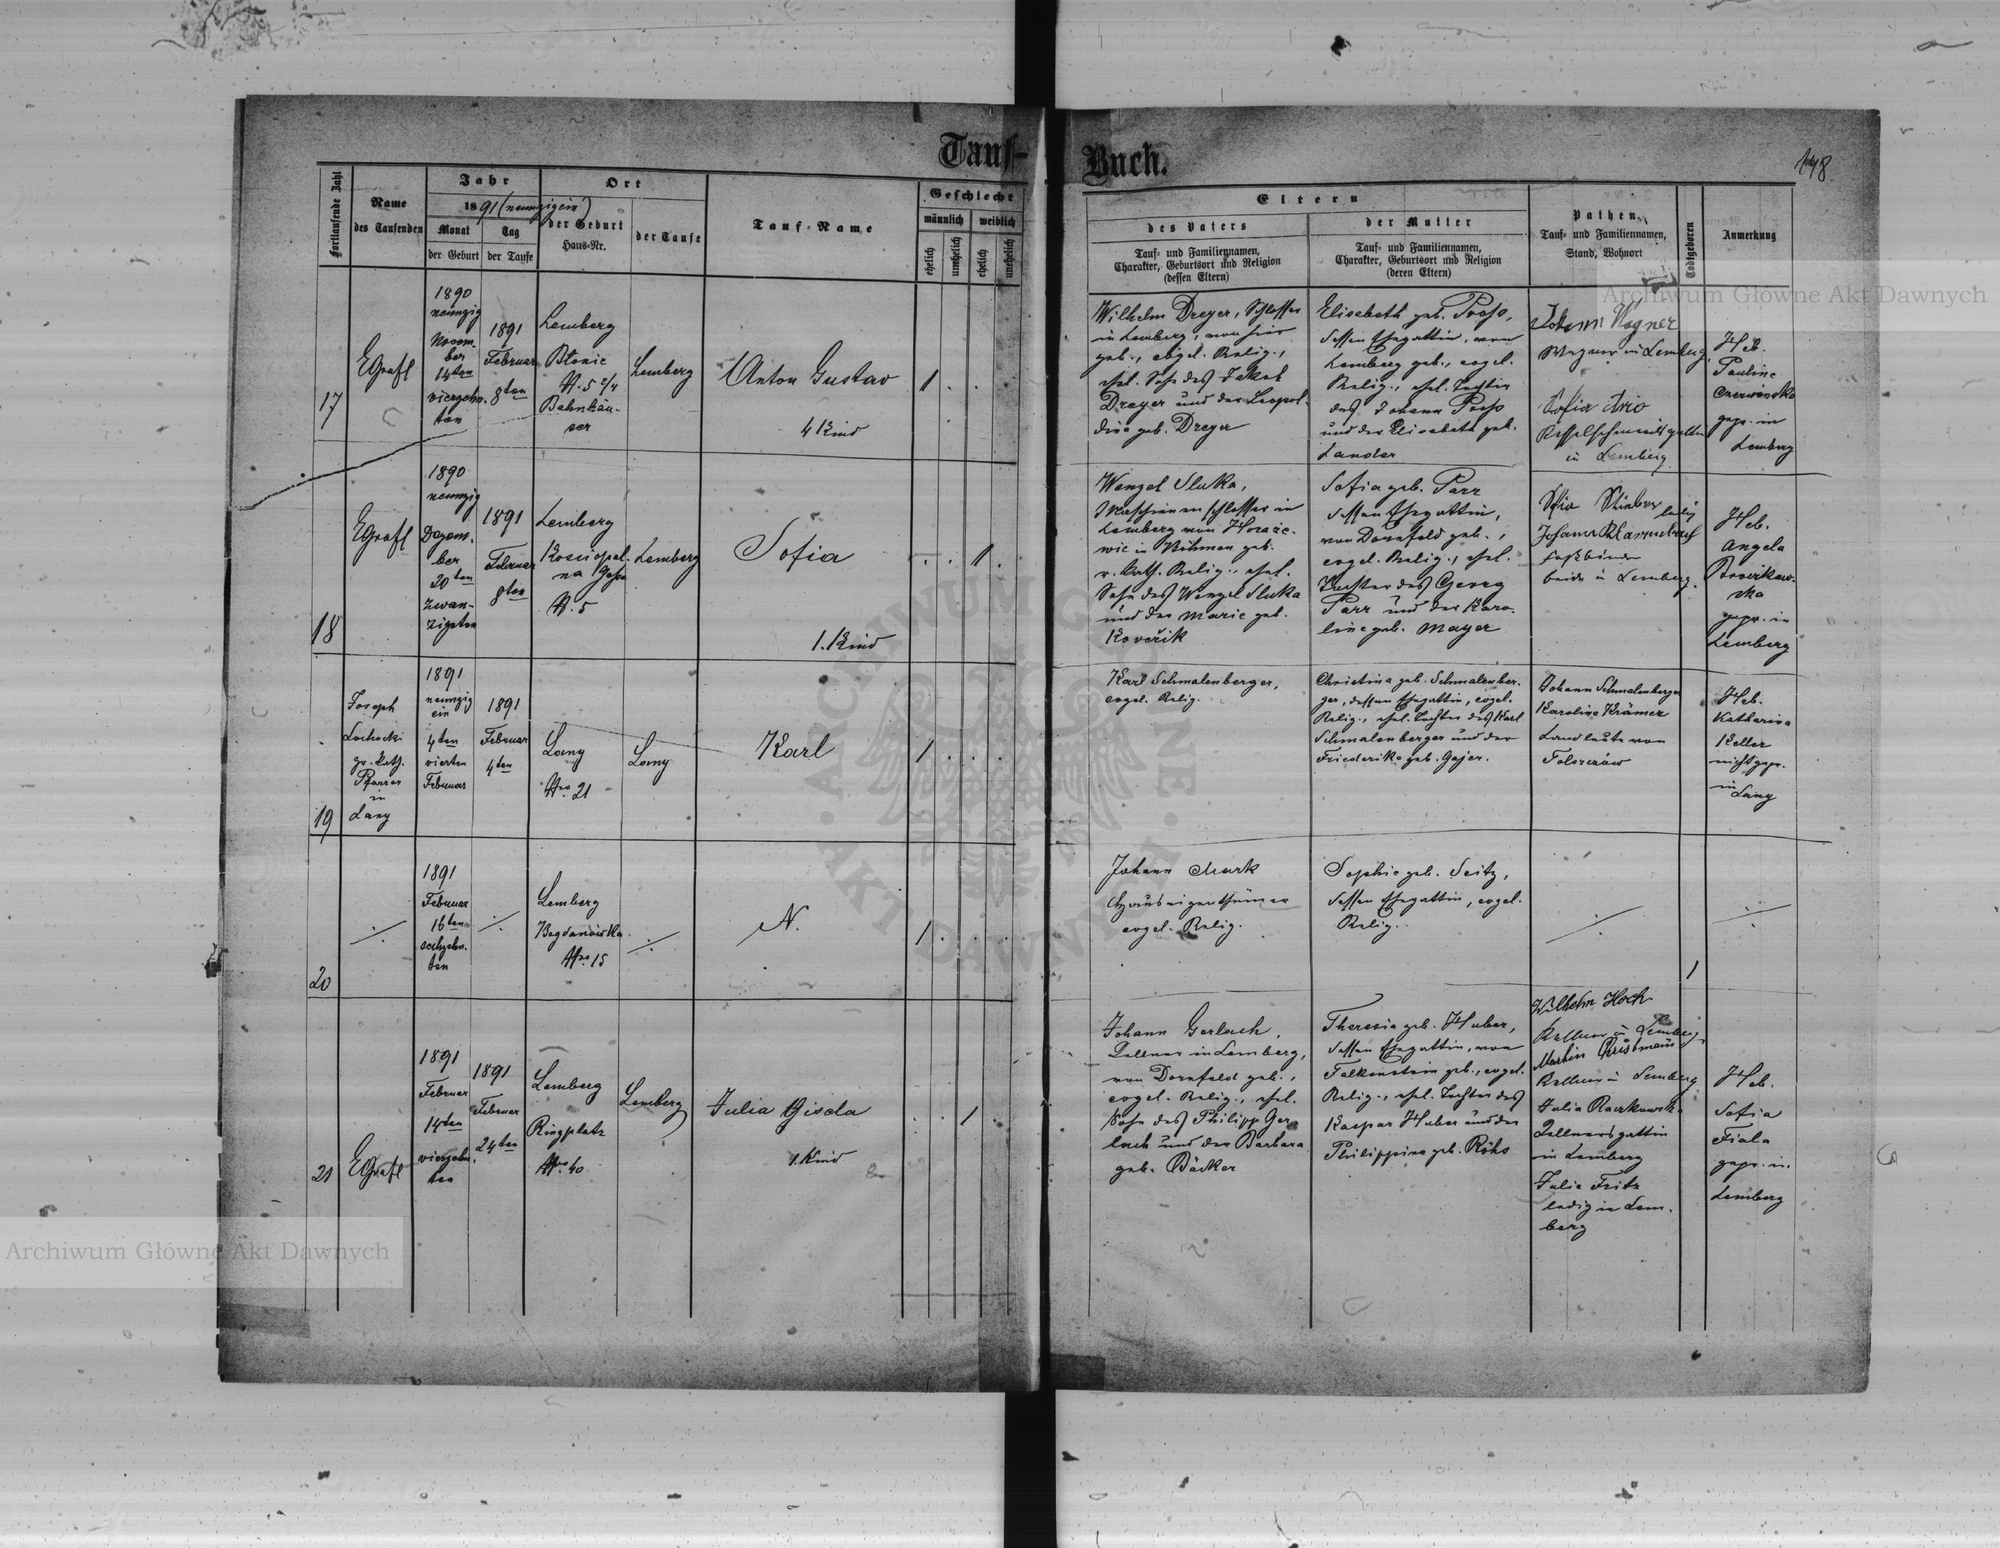 Tauf-
Buch.
148.
Fortlaufende Zahl
Name
des Taufenden
Jahr
1891 (neunzigein)
Monat
der Geburt
Tag
der Taufe
Ort
der Geburt
Haus-Nr.
der Taufe
Tauf-Name
Geschlecht
männlich
weiblich
ehelich
unehelich
ehelich
unehelich
Eltern
des Vaters
Tauf- und Familiennamen,
Charakter, Geburtsort und Religion
(dessen Eltern)
der Mutter
Tauf- und Familiennamen,
Charakter, Geburtsort und Religion
(deren Eltern)
Pathen,
Tauf- und Familiennamen,
Stand, Wohnort
Todtgeboren
Anmerkung
17
EGrafl
1890
neunzig
Novem-
ber
14ten
vierzehn-
ten
1891
Februar
8ten
Lemberg
Błonie
N. 5 2/4
Bahnhäu-
ser
Lemberg
Anton Gustav
4 Kind
1
Wilhelm Dreyer, Schlosser
in Lemberg, von hier
geb., evgel. Relig.,
ehel. Sohn des Jakob
Dreyer und der Leopol-
dine geb. Dreyer
Elisabeth geb. Poss,
dessen Ehegattin, von
Lemberg geb., evgel.
Relig., ehel. Tochter
des Johann Poss
und der Elisabeth geb.
Lander
Johann Wagner
Wagner in Lemberg
Sofia
in Lemberg
Heb.
Pauline
Czerwinska
gepr. in
Lemberg
18
EGrafl
1890
neunzig
Dezem-
ber
20ten
zwan-
zigsten
1891
Februar
8ten
Lemberg
N. 5
Lemberg
Sofia
1. Kind
1
Wenzel Sluka,
Maschinenschlosser in
Lemberg von Horaże-
wic in Böhmen geb.
r. kath. Relig., ehel.
Sohn des Wenzel Sluka
und der Marie geb.
Kovеřik
Sofia geb. Parr
dessen Ehegattin,
von Dornfeld geb.,
evgel. Relig., ehel.
Tochter des Georg
Parr und der Karo-
line geb. Mayer
ledig
Johann
Faßbinder
beide in Lemberg.
Heb.
Angela
gepr. in
Lemberg
19
Joseph
Lochocki
gr. kath.
Pfarrer
in
Lany
1891
neunzig
ein
4ten
vierten
Februar
1891
Februar
4ten
Lany
Nro 21
Lany
Karl
1
Karl Schmalenberger,
evgel. Relig.
Christina geb. Schmalenber-
ger, dessen Ehegattin, evgel.
Relig., ehel. Tochter des Karl
Schmalenberger und der
Friederike geb. Gajer.
Johann Schmalenberger
Karoline Krämer
Landleute von
Falszczów
Heb.
Katharina
Keller
nicht gepr.
in Lany
20
1891
Februar
16ten
sechzehn-
ten
Lemberg
Bogdanówka
Nro 15
N.
1
Johann Mark
Hauseigenthümer
evgel. Relig.
Sophie geb. Seitz,
dessen Ehegattin, evgel.
Relig.
1
21
EGrafl
1891
Februar
14ten
vierzehn-
ten
1891
Februar
24ten
Lemberg
Ringplatz
Nro 40
Lemberg
Julia Gisela
1. Kind
1
Johann Gerlach,
Kellner in Lemberg,
von Dornfeld geb.,
evgel. Relig., ehel.
Sohn des Philipp Ger-
lach und der Barbara
geb. Bäcker
Theresia geb. Huber,
dessen Ehegattin, von
Falkenstein geb., evgel.
Relig., ehel. Tochter des
Kaspar Huber und der
Philippine geb. Röhs
Wilhelm Hoch
Kellner in Lemberg
Martin
Kellner in Lemberg
Julia Raczkowska
Kellnersgattin
in Lemberg
Julie Fritz
ledig in Lem-
berg
Heb.
Sofia
Fiala
gepr. in
Lemberg
Archiwum Główne Akt Dawnych
Archiwum Główne Akt Dawnych
ARCHIWUM GŁÓWNE
AKT DAWNYCH